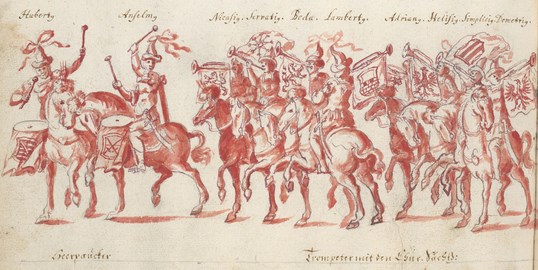 Huberty. Anselmy. Nicasiy. Servatiy. Beda. Lamberty. Adriany. Helisiy. Simplicy. Demetriy.
Heerpaucker Trompeter mit den Chur. Sächß: